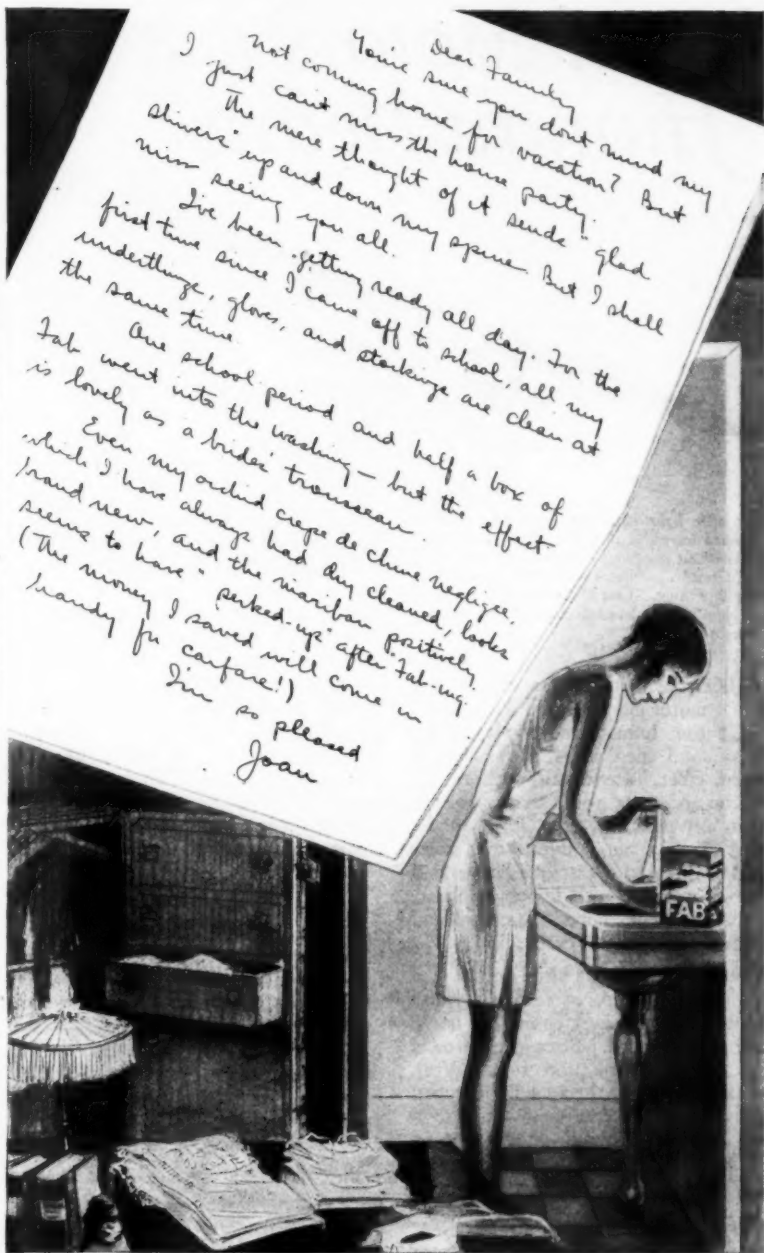 Dear Family
You're sure you dont mind my
not coming home for vacation? But
I just can't miss the house party.
The mere thought of it sends "glad
shivers" up and down my spine. But I shall
miss seeing you all.
I've been getting ready all day. For the
first time since I came off to school, all my
underthings, gloves, and stockings are clean at
the same time.
One school period and half a box of
Fab went into the washing — but the effect
is lovely as a brides' trousseau.
Even my orchid crepe de chine negligee,
which I have always had dry cleaned, looks
brand new, and the maribou positively
seems to have "perked-up" after Fab-ing.
(The money I saved will come in
handy for carfare!)
I'm so pleased
Joan
FAB